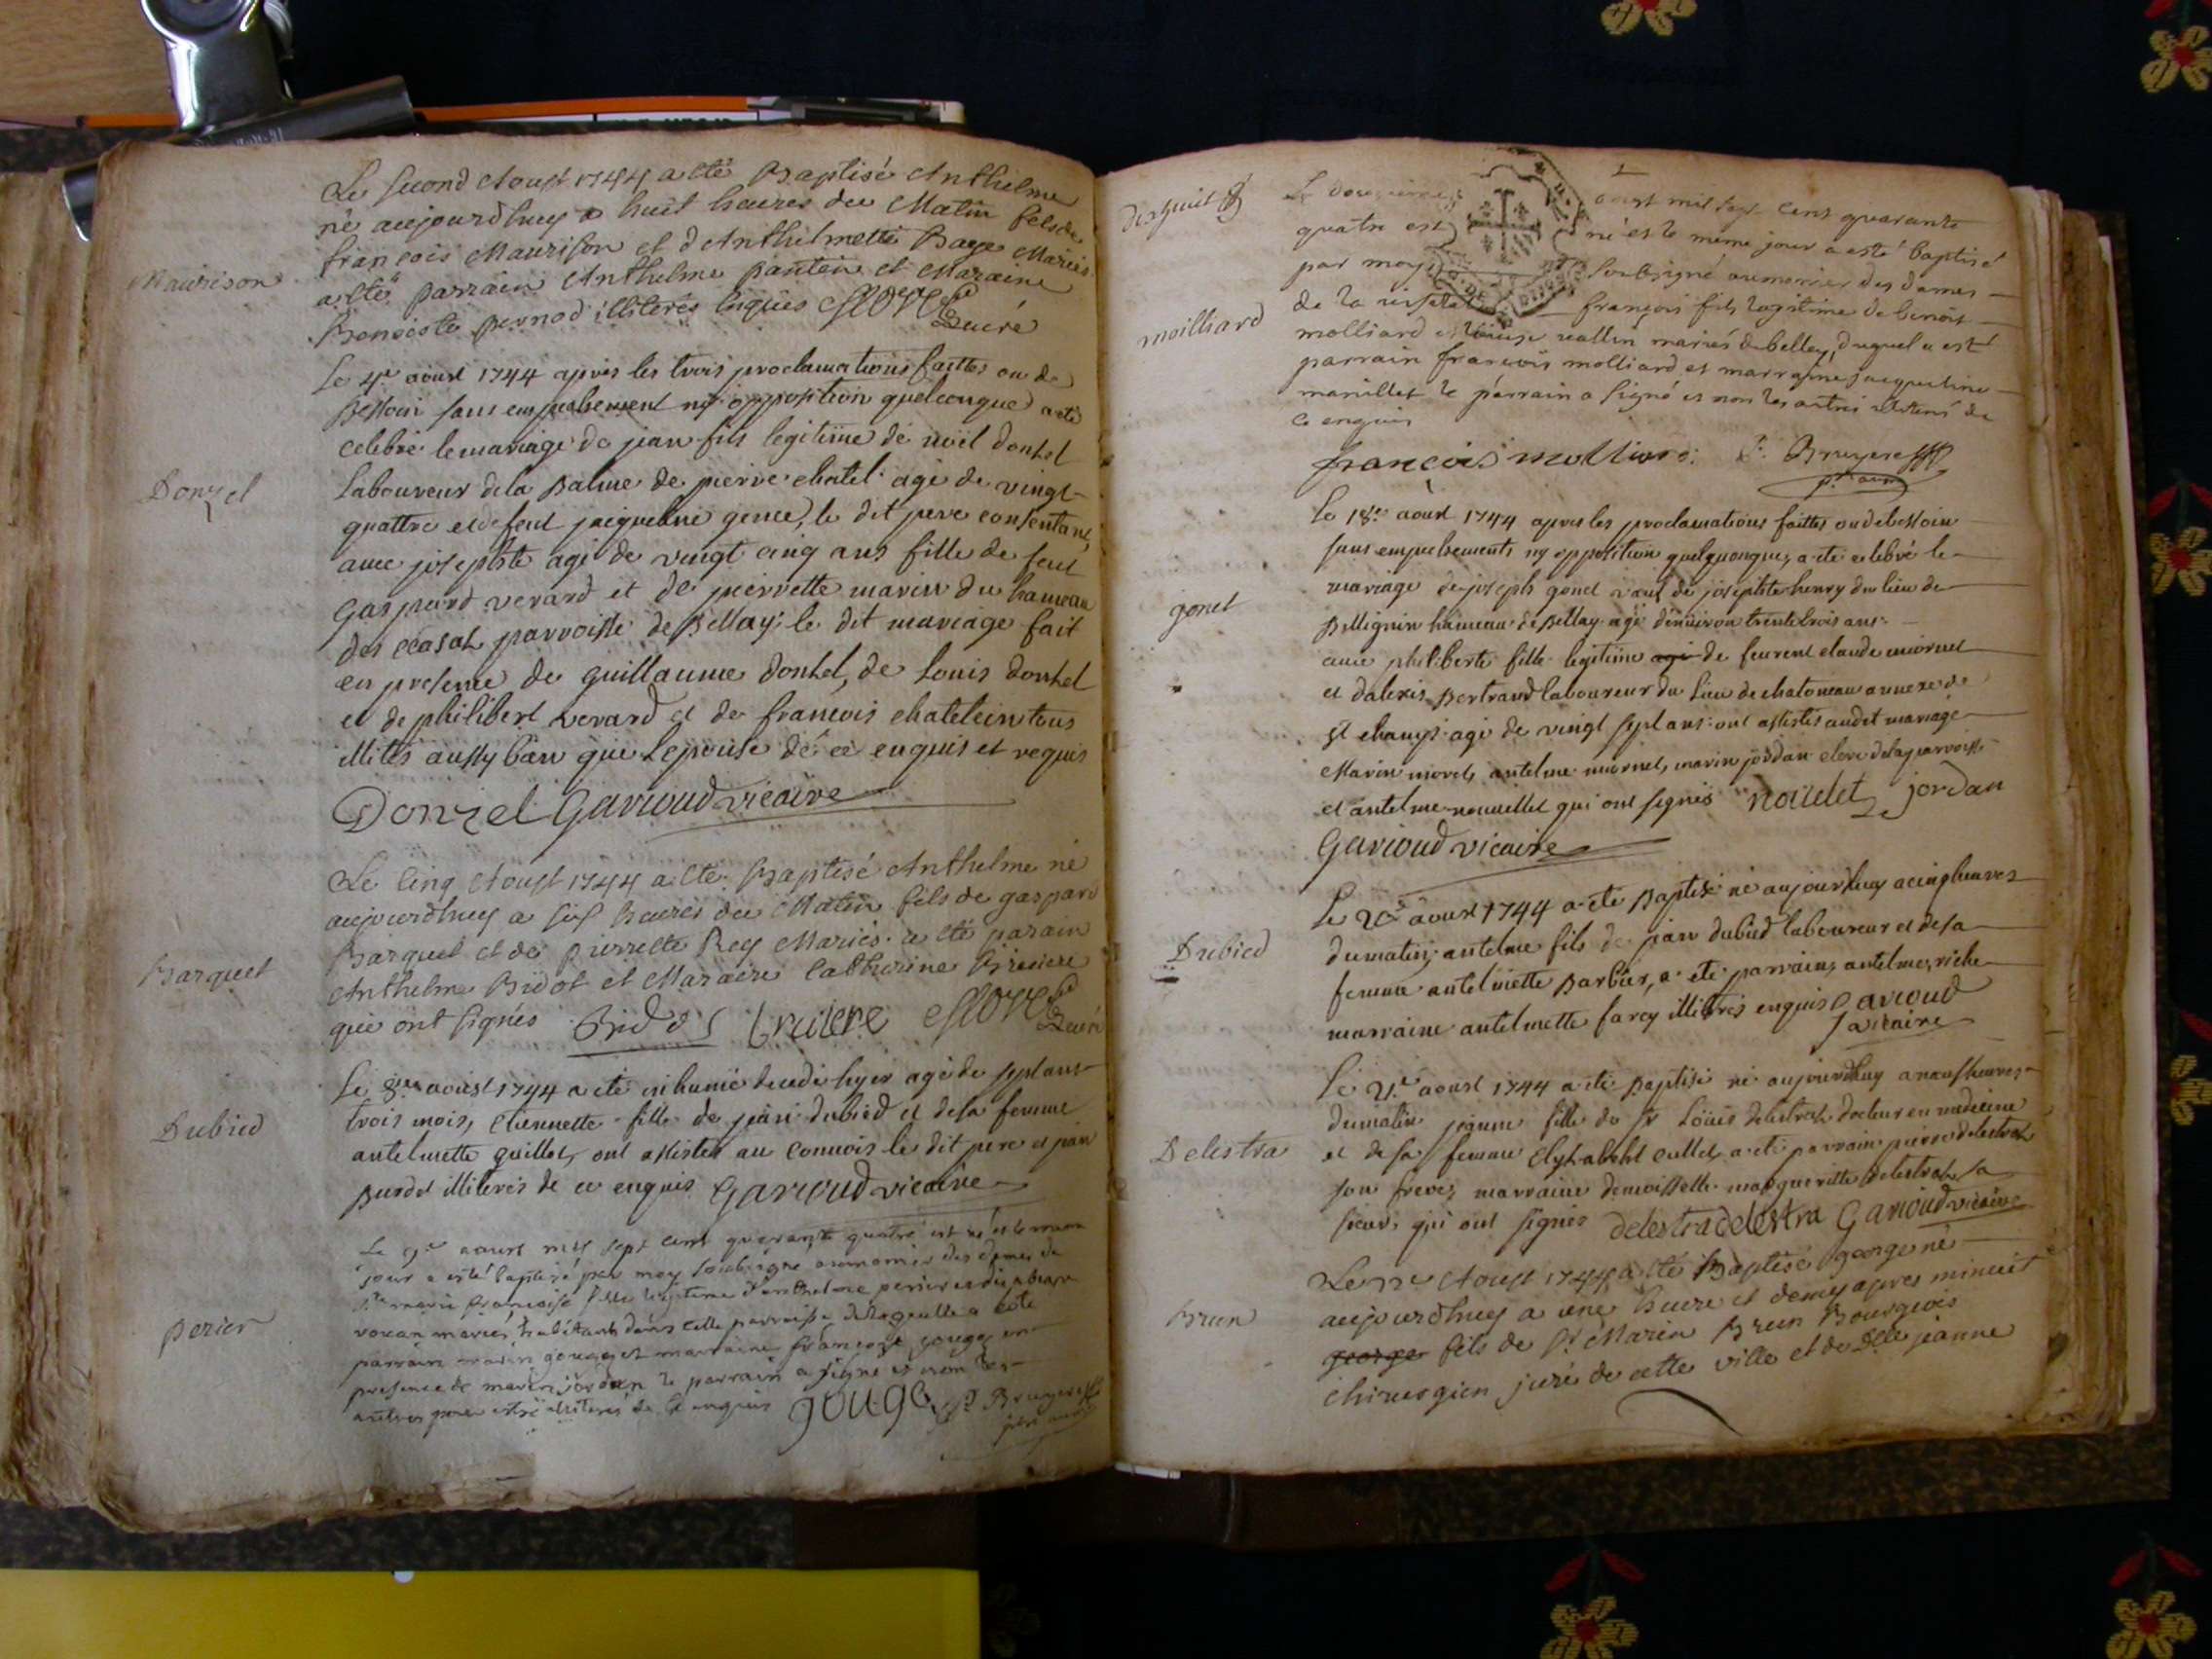 Le second Aoust 1744 a eté Baptisé Anthelme
né aujourdhuy a huit heures du Matin fils de
françois Maurison et d'Anthelmette Baye Mariés.
Maurison
a eté parrain Anthelme pantin et Maraine
Benoiste pernod illiterés enquis
curé
Le 4e aoust 1744 apres les trois proclamations faittes ou de
Besoin sans empechement ny opposition quelconque a eté
celebré le mariage de jean fils legitime de noel donzel
Donzel
Laboureur dela Balme de pierre chatel agé de vingt
quattre et de feue jacqueline le dit pere consentant,
avec josephte agé de vingt cinq ans fille de feu
gaspard verard et de pierrette marin du hameau
des parroisse de Bellay; le dit mariage fait
en presence de guillaume donzel, de Louis donzel
et de philibert verard et de francois chatelein tous
illités aussy bien que Lepouse de ce enquis et requis
Donzel Garioud vicaire
Le cinq Aoust 1744 a eté Baptisé Anthelme né
aujourdhuy a six heures du Matin fils de gaspard
Barquet
Barquet et de pierrette Rey Mariés. a eté parain
Anthelme Bidot et Maraine Catherine
qui ont signés Bidot curé
Le 8me aoust 1744 a eté inhumé decedé hyer agé de sept ans
Dubied
trois mois, etiennette fille de jean dubied et de sa femme
antelmette guillot, ont assistes au convois le dit pere et jean
illiteres de ce enquis Garioud vicaire
Le 9e aoust mil sept cent quarante quatre est né et le meme
jour a esté baptisé par moy soubsigné aumonier des dames de
Ste marie françoise fille legitime d'anthelme perier et
perier
mariés, habitants dans cette parroisse a esté
parrain marin gouge et marraine françoise gouge en
presence de marin jordan le parrain a signé et non les
autres pour estre illiteres de ce enquis gouge Bruyere
dixhuit
Le douzieme aoust mil sept cent quarante
quatre est né et le même jour a esté baptisé
par moy soubsigné aumonier des dames
de la visitation françois fils legitime de benoit
moilliard
molliard et vallin mariés de belley, duquel a est
parrain françois molliard et marraine jacqueline
marillet le parrain a signé et non les autres illiterés de
ce enquis
françois molliard Bruyere
Le 18e aoust 1744 apres les proclamations faittes ou de besoin
sans empechements ny opposition quelquonque, a eté celebré le
gonet
mariage de joseph gonet veuf de josephte henry du lieu de
Billignin hameau de Bellay agé denviron trente trois ans
avec philiberte fille legitime agé de feurent claude
et dalexis Bertrand laboureur du Lieu de chatoneau annexe de
St champ agé de vingt sept ans: ont assistés audit mariage
Marin morel, antelme, marin jordan clerc de la parroisse
et antelme qui ont signés jordan
Garioud vicaire
Le 20e aoust 1744 a eté Baptisé né aujourdhuy a cinq heures
Dubied
du matin, antelme fils de jean dubied laboureur et de sa
femme antelmette Barbier, a eté parrain, antelme riche
marraine antelmette farcy illiterés enquis Garioud
vicaire
Le 21e aoust 1744 a eté Baptisé né aujourdhuy a neuf heures
du matin jeanne fille de Sr Louis delestra docteur en medecine
Delestra
et de sa femme cullet, a eté parrain pierre delestra
son frere, marraine demoisselle margueritte delestra sa
soeur, qui ont signés delestra delestra Garioud vicaire
Aoust 1744 a eté Baptisé george né
aujourdhuy a une heure et demy apres minuit
Brun
george fils de Sr Marin Brun Bourgeois
chirurgien juré de cette ville et de Dlle jeanne